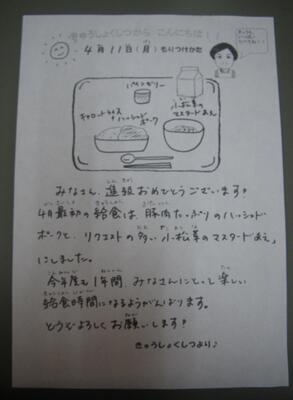 きゅうしょくしつから こんにちは!!
4月11日(月) もりつけかた
パインゼリー
キャロットライス
ハッシュドポーク
小松菜の
マスタードあえ
みなさん、進級おめでとうございます!
4月最初の給食は、豚肉たっぷりのハッシュド
ポークと、リクエストの多い「小松菜のマスタードあえ」
にしました。
今年度も1年間、みなさんにとって楽しい
給食時間になるようがんばります。
どうぞよろしくお願いします!
きゅうしょくしつより♪